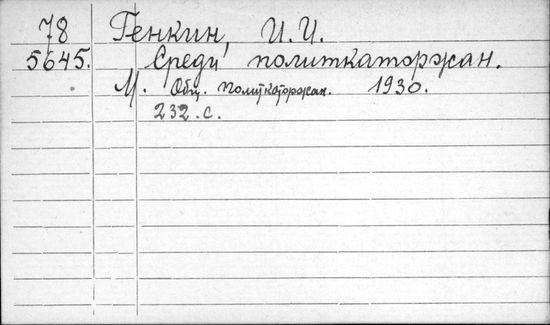 78 Генкин, И.И.
5645. Среди политкаторжан.
М. Общ. политкаторжан. 1930.
232.с.